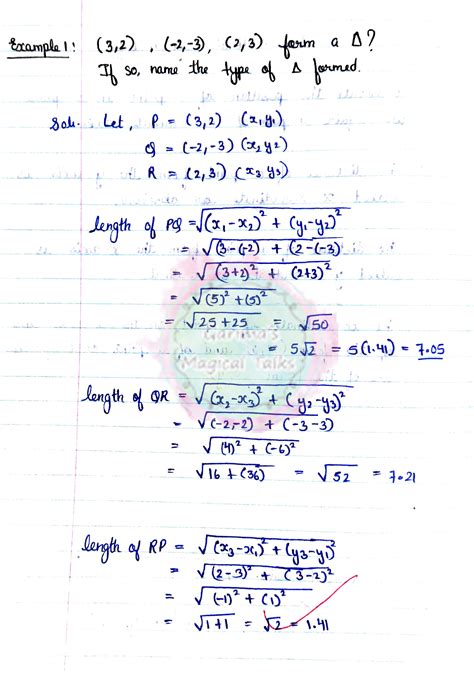 Example 1: (3,2) , (-2,-3), (2,3) form a Δ?
If so, name the type of Δ formed.
Soln. Let, P = (3,2) (x₁y₁)
Q = (-2,-3) (x₂y₂)
R = (2,3) (x₃y₃)
length of PQ = √(x₁-x₂)² + (y₁-y₂)²
= √(3-(-2) + (2-(-3)
= √(3+2)² + (2+3)²
= √(5)² + (5)²
= √25+25 = √50
= 5√2 = 5(1.41) = 7.05
Garima's
Magical Talks
length of QR = √(x₂-x₃)² + (y₂-y₃)²
= √(-2,-2) + (-3-3)
= √(4)² + (-6)²
= √16 + (36) = √52 = 7.21
length of RP = √(x₃-x₁)² + (y₃-y₁)²
= √(2-3)² + (3-2)²
= √(-1)² + (1)²
= √1+1 = √2 = 1.41